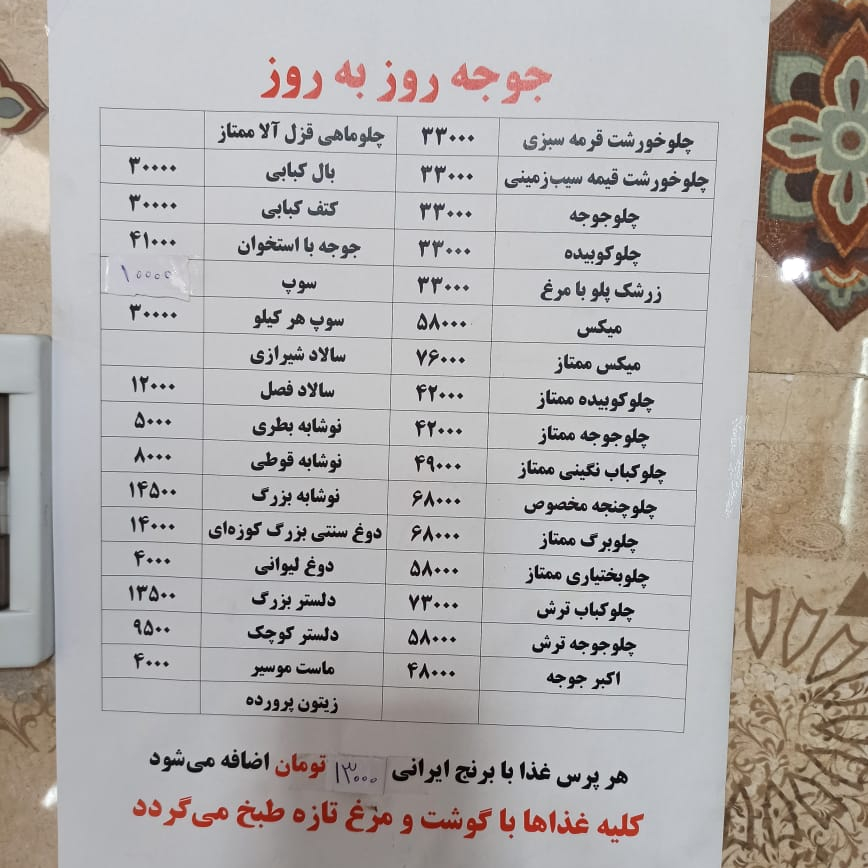 جوجه روز به روز
چلوخورشت قرمه سبزی ۳۳۰۰۰ چلوماهی قزل آلا ممتاز
چلوخورشت قیمه سیب‌زمینی ۳۳۰۰۰ بال کبابی ۳۰۰۰۰
چلوجوجه ۳۳۰۰۰ کتف کبابی ۳۰۰۰۰
چلوکوبیده ۳۳۰۰۰ جوجه با استخوان ۴۱۰۰۰
زرشک پلو با مرغ ۳۳۰۰۰ سوپ ۱۰۰۰۰
میکس ۵۸۰۰۰ سوپ هر کیلو ۳۰۰۰۰
میکس ممتاز ۷۶۰۰۰ سالاد شیرازی
چلوکوبیده ممتاز ۴۲۰۰۰ سالاد فصل ۱۲۰۰۰
چلوجوجه ممتاز ۴۲۰۰۰ نوشابه بطری ۵۰۰۰
چلوکباب نگینی ممتاز ۴۹۰۰۰ نوشابه قوطی ۸۰۰۰
چلوچنجه مخصوص ۶۸۰۰۰ نوشابه بزرگ ۱۴۵۰۰
چلوبرگ ممتاز ۶۸۰۰۰ دوغ سنتی بزرگ کوزه‌ای ۱۴۰۰۰
چلوبختیاری ممتاز ۵۸۰۰۰ دوغ لیوانی ۴۰۰۰
چلوکباب ترش ۷۳۰۰۰ دلستر بزرگ ۱۳۵۰۰
چلوجوجه ترش ۵۸۰۰۰ دلستر کوچک ۹۵۰۰
اکبر جوجه ۴۸۰۰۰ ماست موسیر ۴۰۰۰
زیتون پرورده
هر پرس غذا با برنج ایرانی ۱۳۰۰۰ تومان اضافه می‌شود
کلیه غذاها با گوشت و مرغ تازه طبخ می‌گردد